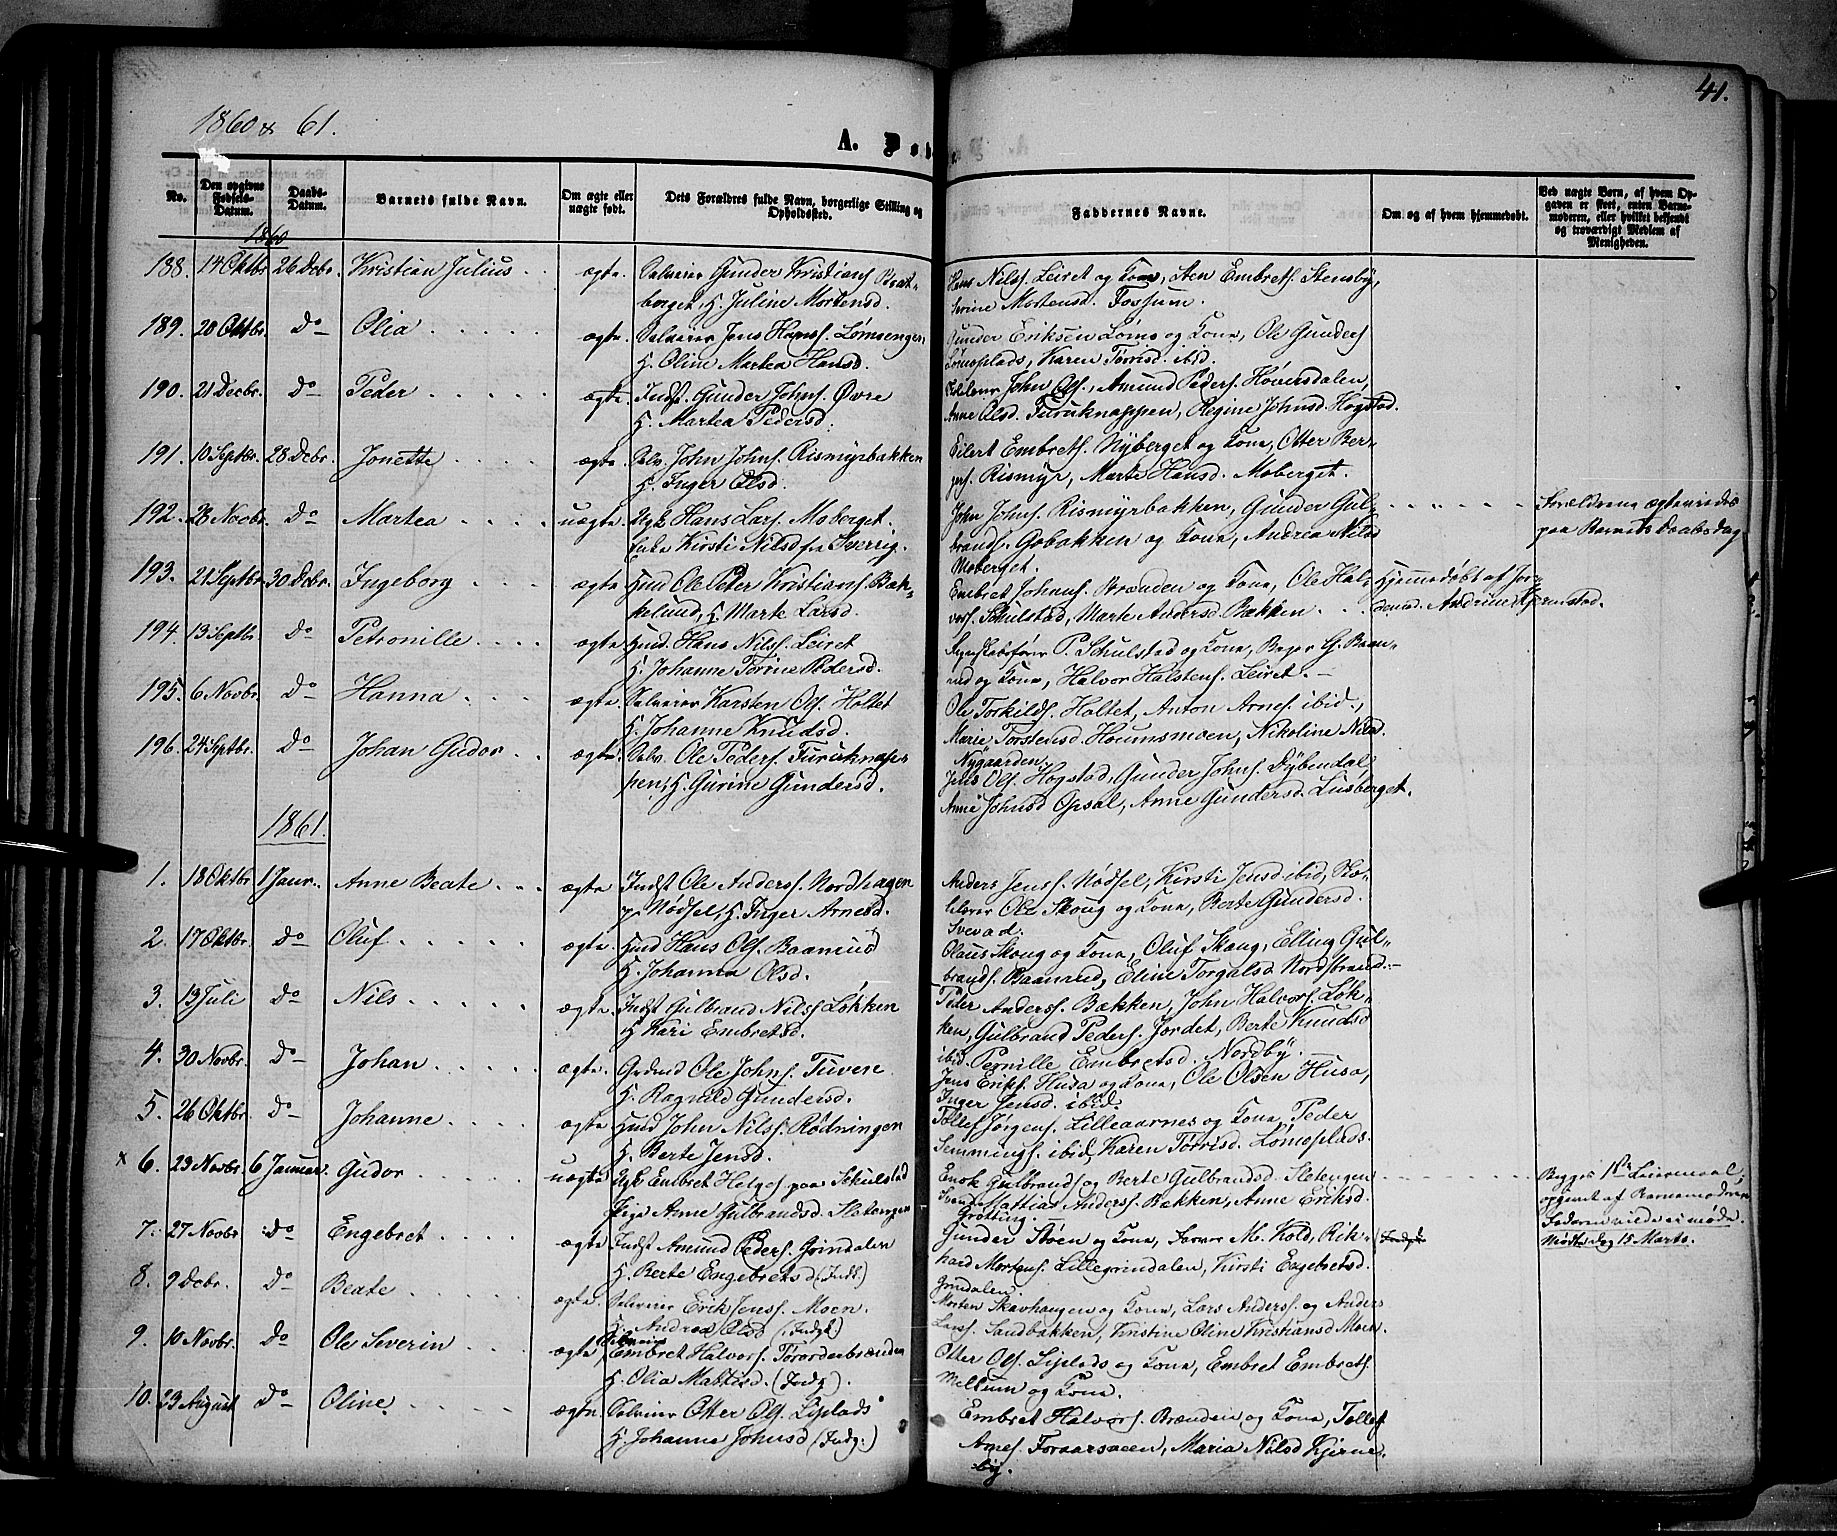 41.
1860 & 61.
A. Døb
No.
Den opgivne Fødsels-Datum.
Daabs-Datum.
Barnets fulde Navn.
Om ægte eller uægte født.
Dets Forældres fulde Navn, borgerlige Stilling og Opholdssted.
Faddernes Navne.
Om og af hvem hjemmedøbt.
Ved uægte Børn, af hvem Opgaven er skeet, enten Barnemoderen, eller hvilket bekjendt og troværdigt Medlem af Menigheden.
1860
188. 14 Oktbr. 26 Debr. Kristian Julius . . ægte. Selveier Gunder Kristians. Brat-
berget, H. Juline Mortensd.
Hans Nils. Leiret og Kone, Sten Embrets. Stensby,
Serine Mortensd. Fossum.
189. 20 Oktbr. Do Olia . . . . ægte. Selveier Jens Hans. Lømoengen,
H. Oline Martea Hansd.
Gunder Eriksen Lømo og Kone, Ole Gunders.
Lømoplads, Karen Torrisd. ibid.
190. 21 Decbr. Do Peder . . . . ægte. Indst. Gunder Johns. Øvre
H. Martea Pedersd.
John Ols., Amund Peders. Hoversdalen,
Anne Olsd. Furuknappen, Regine Johnsd. Hogstad.
191. 10 Septbr. 28 Debr. Jonette . . . . ægte. Selv. John Johns. Rismyrbakken
H. Inger Olsd.
Eilert Embrets. Nyberget og Kone, Otter Ber-
gers. Rismyr, Marte Hansd. Moberget.
192. 28 Novbr. Do Martea . . . . uægte. Ugk. Hans Lars. Moberget.
Enke Kirsti Nilsd fra Sverrig.
John Johns. Rismyrbakken, Gunder Gul-
brands. Gobakken og Kone, Andrea Nilsd
Moberget.
Forældrene ægteviedes
paa Barnets Daabsdag
193. 21 Septbr. 30 Debr. Ingeborg . . . ægte. Husd Ole Peter Kristians. Bæk-
kelund, H. Marte Larsd.
Embret Johans. Brænden og Kone, Ole Hal-
vors. Skulstad, Marte Andersd. Bækken . . .
Hjemmedøbt af Jor-
demod. Andrine Kjernstad.
194. 13 Septbr. Do Petronille . . . ægte. Husd. Hans Nils. Leiret
H. Johanne Torine Pedersd.
P. Schulstad og Kone, Bager G. Baam-
rud og Kone, Halvor Halstens. Leiret. —
195. 6 Novbr. Do Hanna . . . . ægte. Selveier Karsten Ols. Holtet
H. Johanne Knudsd.
Ole Torkilds. Holtet, Anton Arnes. ibid.,
Marie Torstensd. Houmsmoen, Nikoline Nilsd.
Nygaarden.
196. 24 Septbr. Do Johan Gudor . . ægte. Selv. Ole Peders. Furuknap-
pen, H. Gurine Gundersd.
Jens Ols. Hogstad, Gunder Johns. Dybendal,
Anne Johnsd Opsal, Anne Gundersd. Lusberget.
1861.
1. 18 Oktbr 1 Janr. Anne Beate . . . ægte Indst Ole Anders. Nordhagen
p. Nødsel, H. Inger Arnesd.
Anders Jens. Nødsel, Kirsti Jensd ibid, Sko-
lelærer Ole Skoug og Kone, Berte Gundersd.
Svevad.
2. 17 Oktbr. Do Oluf . . . . ægte. Husd Hans Ols. Baamrud
H. Johanna Olsd.
Olaus Skoug og Kone, Oluf Skoug, Elling Gul-
brands. Baamrud, Eline Torgalsd Nordstrand. —
3. 13 Juli Do Nils . . . . . ægte. Indst Gulbrand Nils. Løkken
H. Kari Embretsd.
Peder Anders. Bækken, John Halvors. Løk-
ken, Gulbrand Peders. Jordet, Berte Knudsd
ibid. Pernille Embretsd. Nordby.
4. 30 Novbr. Do Johan . . . . . ægte. Grdmd Ole Johns. Tuvene
H. Ragnild Gundersd.
Jens Eriks. Husa og Kone, Ole Olsen Husa,
Inger Jensd. ibid.
5. 26 Oktbr. Do Johanne . . . . ægte Husd John Nils. Rødningen
H. Berte Jensd.
Tollef Jørgens. Lilleaarnes og Kone, Peder
Semmings. ibid, Karen Torrisd. Lømoplads.
x 6. 23 Novbr. 6 Januar. Gudor . . . . uægte Ugk Embret Helges. paa Skulstad
Pige Anne Gulbrandsd. Sletengen
Enok Gulbrands og Berte Gulbrandsd. Sletengen
Mattias Anders. Bækken, Anne Eriksd.
Grotting.
Begges 1ste Leiermaal,
opgivet af Barnemoderen
Faderen vilde ei møde.
Mødte dog 15 Marts.
7. 27 Novbr Do Engebret . . . ægte Indst Amund Peders. Grindalen
H. Berte Engebretsd (Indt.)
Gunder Støen og Kone, Farver M. Kold, Rik-
hard Mortens. Lillegrindalen, Kirsti Engebretsd.
Grindalen.
8. 9 Debr. Do Beate . . . . ægte. Selveier Erik Jens. Moen.
H. Andrea Olsd (Indg.)
Morten Skavhaugen og Kone, Lars Anders. og Anders
Lars. Sandbakken, Kristine Oline Kristiansd Moen.
9. 10 Novbr. Do Ole Severin . . . ægte Selveier
Embret Halvors. Tørarderbrænden
H. Olia Mattisd. (Indg).
Otter Ols. Lisplads og Kone, Embret Embrets.
Mellum og Kone.
10. 23 August Do Oline . . . . ægte Selveier Otter Ols. Lisplads
H. Johanna Johnsd (Indg.)
Embret Halvors. Brænden og Kone, Tollef
Arnes. Foraarsaeen, Maria Nilsd Kjerne-
by.